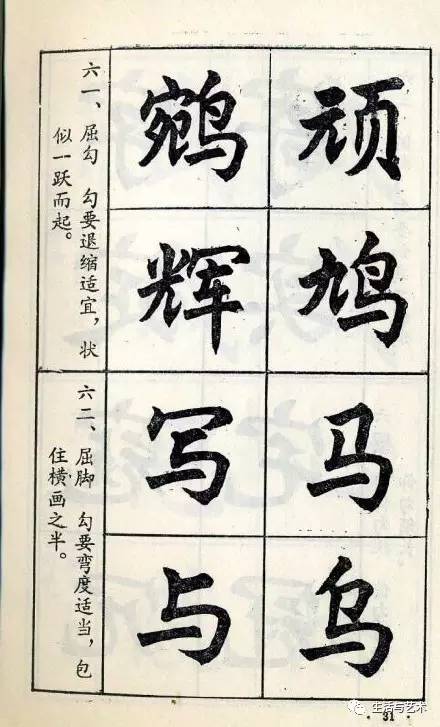 顽
鸠
鹓
辉
六一、屈勾 勾要退缩适宜，状
似一跃而起。
马
乌
写
与
六二、屈脚 勾要弯度适当，包
住横画之半。
31
生活与艺术